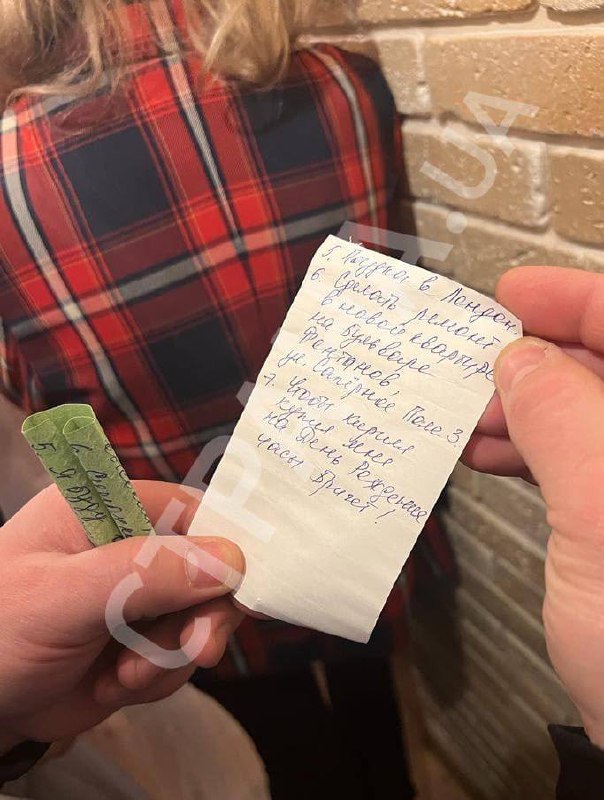 5. Поездка в Лондон.
6. Сделать ремонт
в новой квартире
на бульваре
Фонтанов
ул. Сапёрное Поле 3.
7. Чтобы Кирилл
купил мне
на День Рождение
часы Бригет!
5. Я
6.
СТРАНА.UA